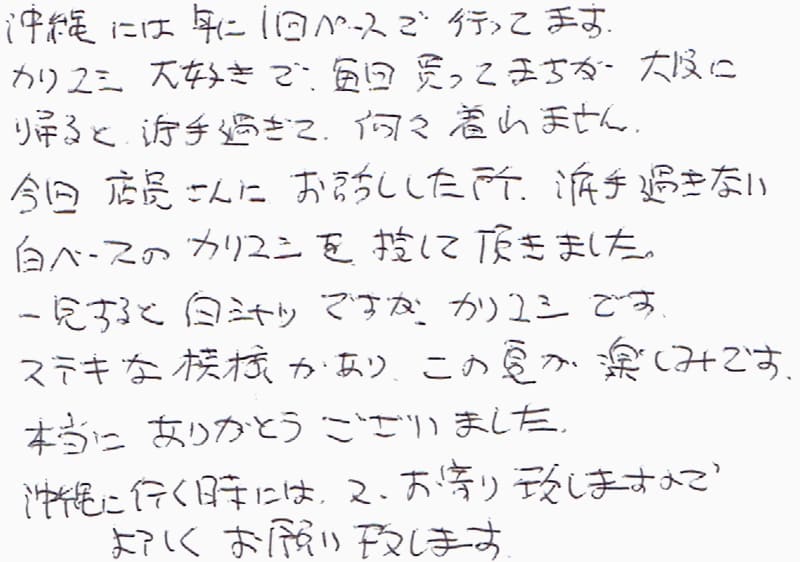 沖縄には年に1回ペースで行ってます.
カリユシ大好きで、毎回買ってますが大阪に
帰ると、派手過ぎて、何々着れません.
今回店員さんにお話しした所、派手過ぎない
白ベースのカリユシを探して頂きました。
一見すると白シャツですが、カリユシです.
ステキな模様があり、この夏が楽しみです.
本当にありがとうございました.
沖縄に行く時には、又、お寄り致しますので
よろしくお願い致します.